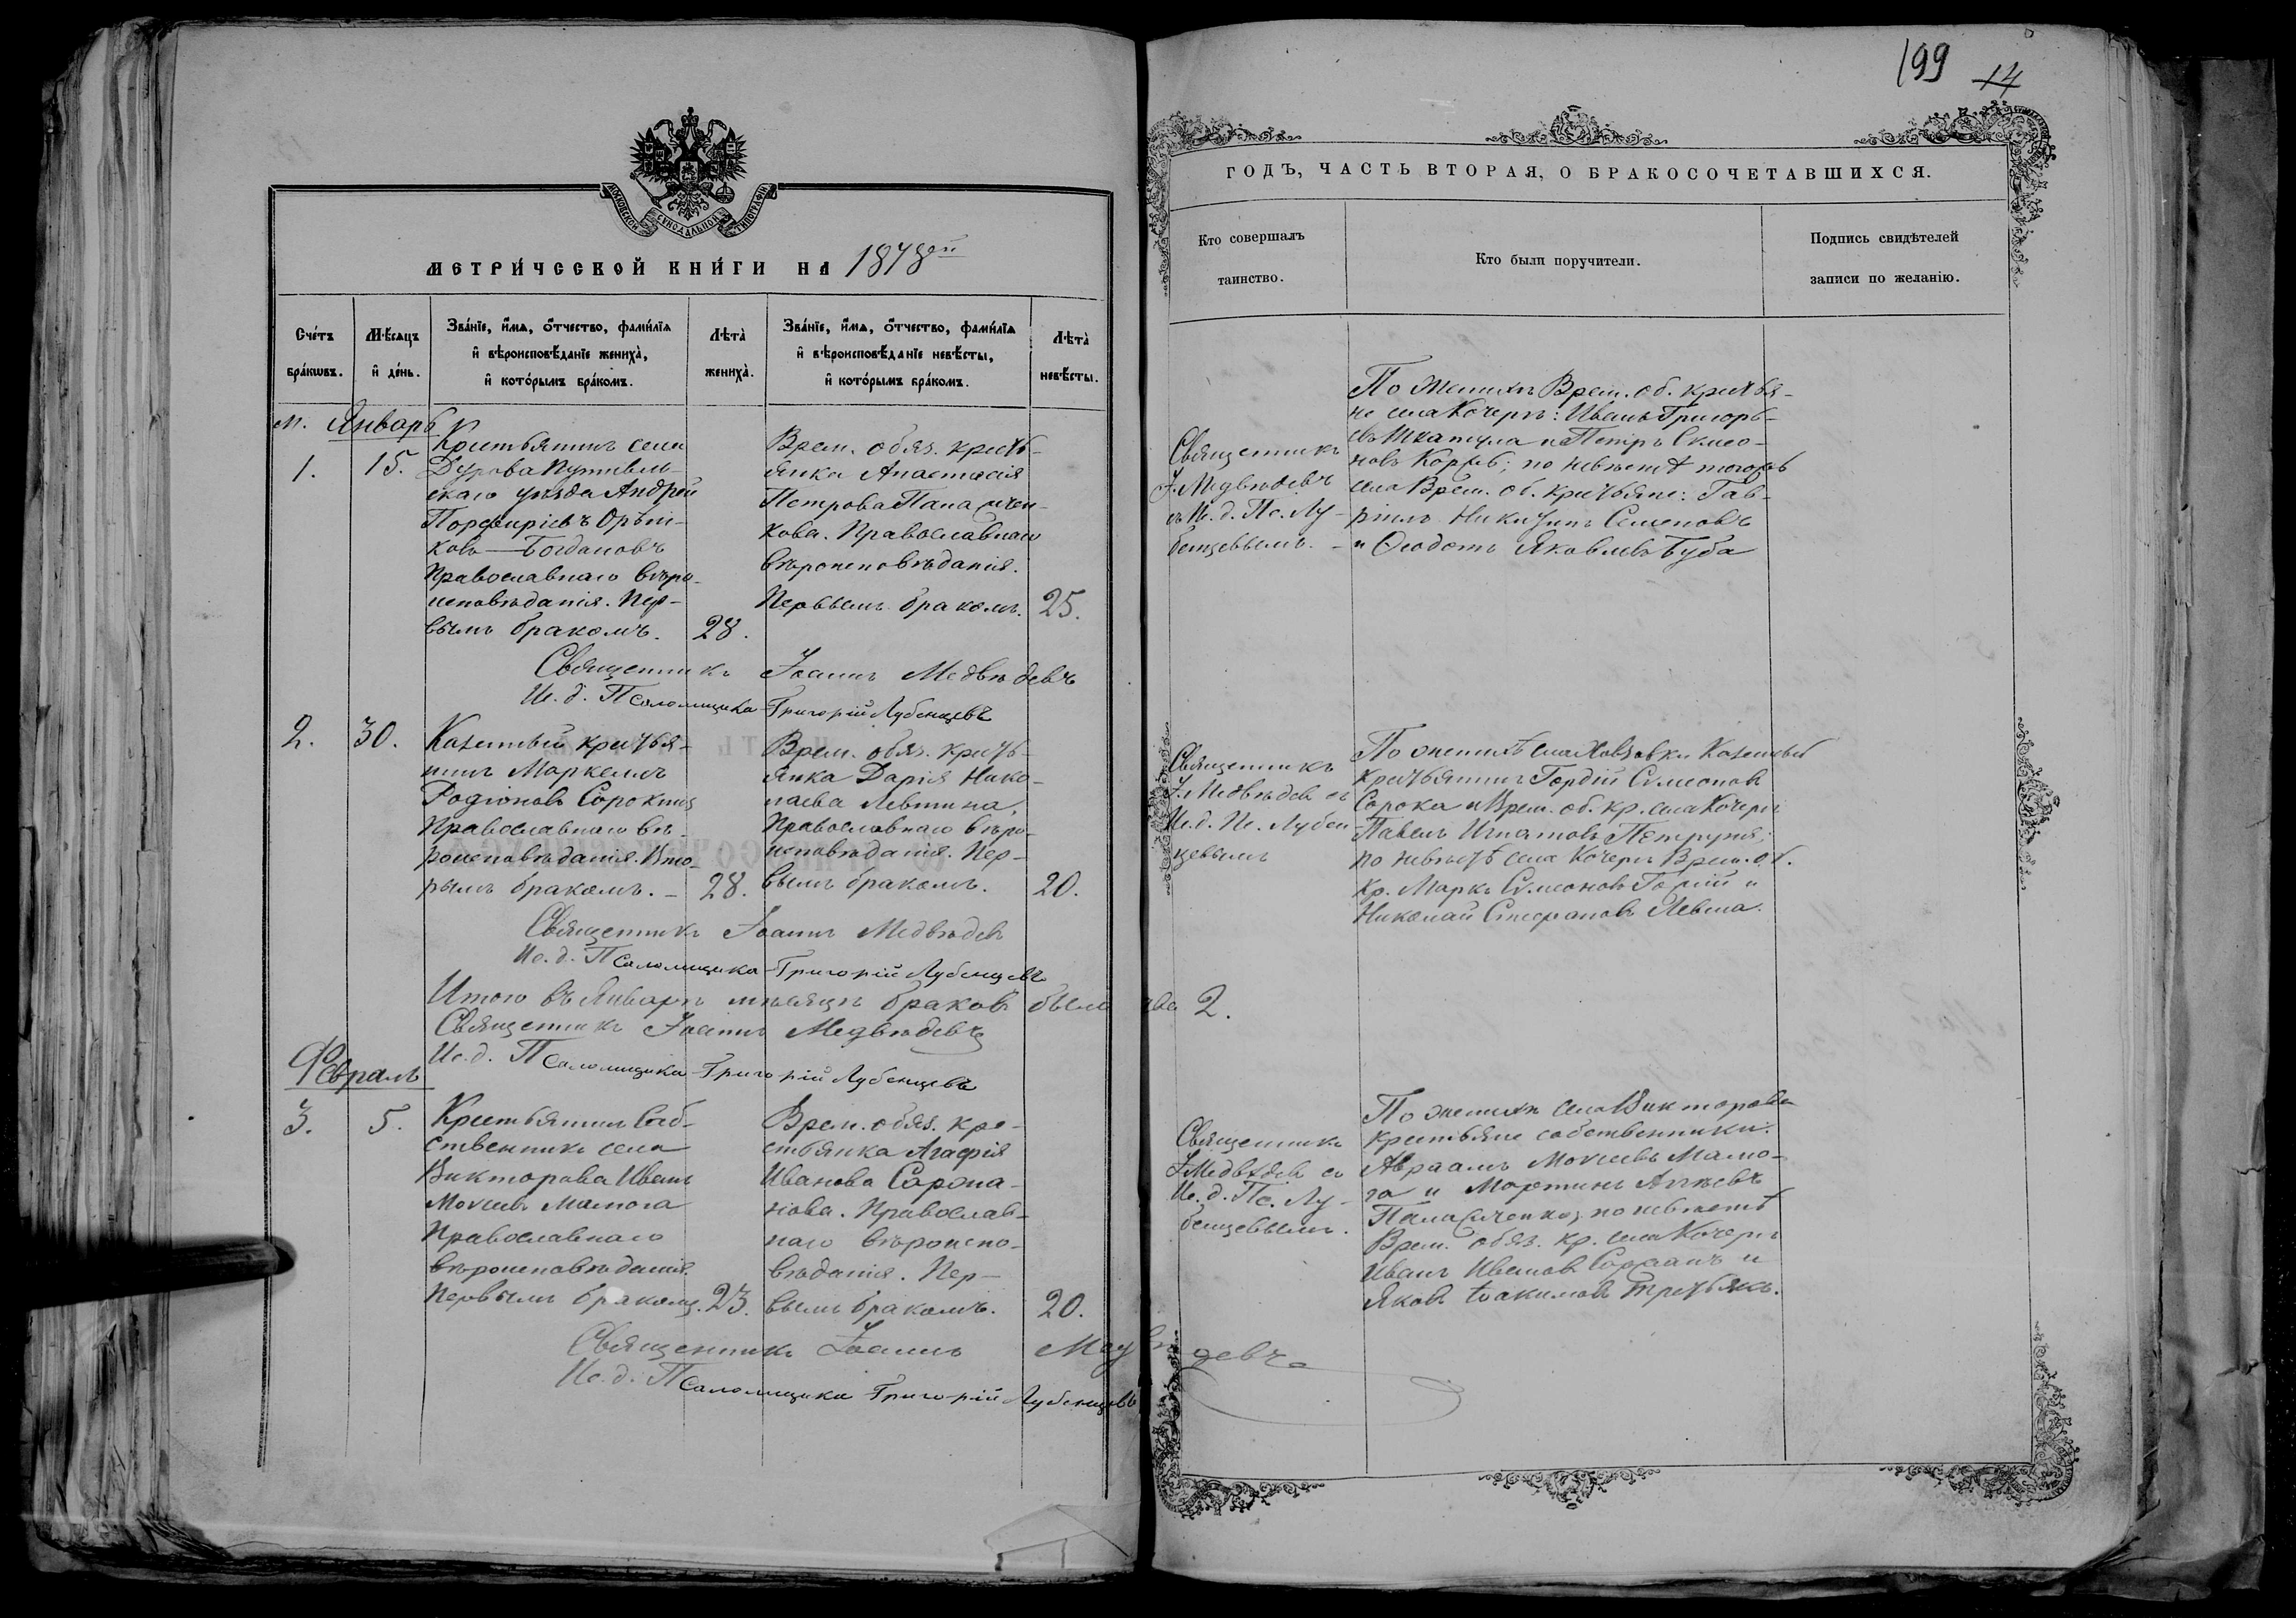 199 14
МОСКОВСКОЙ СѴНОДАЛЬНОЙ ТИПОГРАФІИ
МЕТРИ́ЧЕСКОЙ КНИ́ГИ НА 1878ой
Сче́тъ бра́кѡвъ.
Мѣ́сѧцъ и҆ де́нь.
Зва́нїе, и҆́мѧ, ѻ҆́тчество, фами́лїѧ
и҆ вѣроисповѣ́данїе жениха̀,
и҆ кото́рымъ бра́комъ.
Лѣта̀ жениха̀.
Зва́нїе, и҆́мѧ, ѻ҆́тчество, фами́лїѧ
и҆ вѣроисповѣ́данїе невѣ́сты,
и҆ кото́рымъ бра́комъ.
Лѣта̀ невѣ́сты.
м. Январь
1. 15.
Крестьянинъ села
Дурова Путивль-
скаго уѣзда Андрей
Порфиріевъ Орѣш-
ковъ—Богдановъ
Православнаго вѣро-
исповѣданія. Пер-
вымъ бракомъ. 28.
Врем. обяз. кресть-
янка Анастасія
Петрова Панасичен-
кова. Православнаго
вѣроисповѣданія.
Первымъ бракомъ. 25.
Священникъ Іоаннъ Медвѣдевъ
Ис. д. Псаломщика Григорій Лубенцевъ
2. 30.
Казенный крестья-
нинъ Маркеллъ
Родіоновъ Сорокинъ
Православнаго вѣ-
роисповѣданія. Вто-
рымъ бракомъ. - 28.
Врем. обяз. кресть-
янка Дарія Нико-
лаева Левшина,
Православнаго вѣро-
исповѣданія. Пер-
вымъ бракомъ. 20.
Священникъ Іоаннъ Медвѣдевъ
Ис. д. Псаломщика Григорій Лубенцевъ
Итого въ Январѣ мѣсяцѣ браковъ было два 2.
Священникъ Іоаннъ Медвѣдевъ
Ис. д. Псаломщика Григорій Лубенцевъ
Февраль
3. 5.
Крестьянинъ Соб-
ственникъ села
Викторова Иванъ
Моисеевъ Мамога
Православнаго
вѣроисповѣданія.
Первымъ бракомъ. 23.
Врем. обяз. кре-
стьянка Агафія
Иванова Сорока-
Православ-
наго вѣроиспо-
вѣданія. Пер-
вымъ бракомъ. 20.
Священникъ Іоаннъ Медвѣдевъ
Ис. д. Псаломщика Григорій Лубенцевъ
ГОДЪ, ЧАСТЬ ВТОРАЯ, О БРАКОСОЧЕТАВШИХСЯ.
Кто совершалъ
таинство.
Кто были поручители.
Подпись свидѣтелей
записи по желанію.
Священникъ
І. Медвѣдевъ
съ И. д. Пс. Лу-
бенцевымъ. -
По женихѣ Врем. об. крестья-
не села Кочергъ: Иванъ Григорь-
евъ Шкатула и Петръ Симео-
новъ Коржъ; по невѣстѣ тогожъ
села Врем. об. крестьяне: Гав-
ріилъ Никитинъ Семеновъ
и Ѳеодотъ Яковлевъ Буба
Священникъ
І. Медвѣдевъ съ
Ис. д. Пс. Лубен-
цевымъ
По женихѣ села Казенный
крестьянинъ Гордій Симеоновъ
Сорока и Врем. об. кр. села Кочергъ
Павелъ Игнатовъ Петруня;
по невѣстѣ села Кочергъ Врем. об.
кр. Маркъ Симеоновъ и
Николай Стефановъ Левша.
Священникъ
І. Медвѣдевъ съ
Ис. д. Пс. Лу-
бенцевымъ.
По женихѣ села Викторова
крестьяне собственники:
Авраамъ Моисеевъ Мамо-
га и Мартинъ
Панасиченко; по невѣстѣ
Врем. обяз. кр. села Кочергъ
Иванъ Ивановъ и
Яковъ Іоакимовъ Третьякъ.